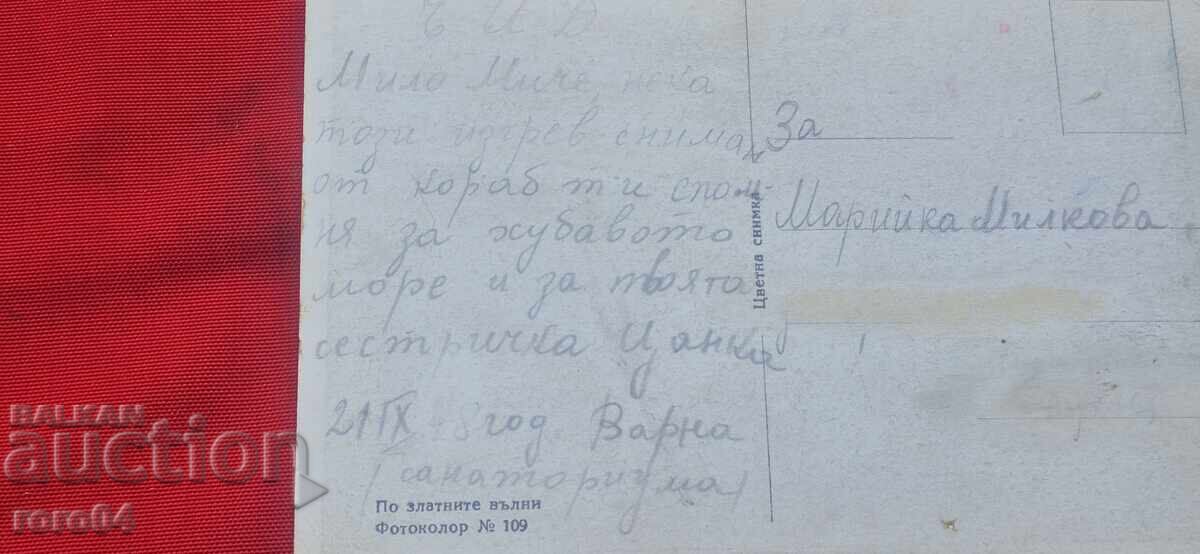 Ч И Д
Мила Миче, нека
този изгрев снимах
от кораб ти спом-
ня за хубавото
море и за твоята
сестричка Цанка
21 IX год Варна
(санаториума)
По златните вълни
Фотоколор № 109
Цветна снимка
За
Марийка Милкова
BALKAN
auction
roro04